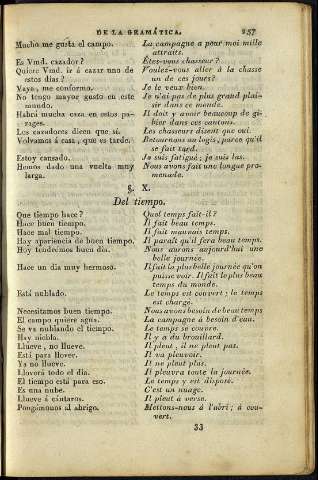 DE LA GRAMÁTICA. 257
Mucho me gusta el campo. La campagne a pour moi mille
attraits.
Es Vmd. cazador ? Êtes-vous chasseur ?
Quiere Vmd. ir á cazar uno de Voulez-vous aller à la chasse
estos dias ? un de ces jours ?
Vaya, me conformo. Je le veux bien.
No tengo mayor gusto en este Je n'ai pas de plus grand plai-
mundo. sir dans ce monde.
Habrá mucha caza en estos pa- Il doit y avoir beaucoup de gi-
rages. bier dans ces cantons.
Los cazadores dicen que sí. Les chasseurs disent que oui.
Volvamos á casa, que es tarde. Retournons au logis, parce qu'il
se fait tard.
Estoy cansado. Je suis fatigué ; je suis las.
Hemos dado una vuelta muy Nous avons fait une longue pro-
larga. menade.
§. X.
Del tiempo.
Que tiempo hace ? Quel temps fait-il ?
Hace buen tiempo. Il fait beau temps.
Hace mal tiempo. Il fait mauvais temps.
Hay apariencia de buen tiempo. Il paraît qu'il fera beau temps.
Hoy tendrémos buen dia. Nous aurons aujourd'hui une
belle journée.
Hace un dia muy hermoso. Il fait la plus belle journée qu'on
puisse voir. Il fait le plus beau
temps du monde.
Está nublado. Le temps est couvert ; le temps
est chargé.
Necesitamos buen tiempo. Nous avons besoin de beau temps
El campo quiere agua. La campagne a besoin d'eau.
Se va nublando el tiempo. Le temps se couvre.
Hay niebla. Il y a du brouillard.
Llueve, no llueve. Il pleut, il ne pleut pas.
Está para llover. Il va pleuvoir.
Ya no llueve. Il ne pleut plus.
Lloverá todo el dia. Il pleuvra toute la journée.
El tiempo está para eso. Le temps y est disposé.
Es una nube. C'est un nuage.
Llueve á cántaros. Il pleut à verse.
Pongámonos al abrigo. Mettons-nous à l'abri ; à cou-
vert.
33